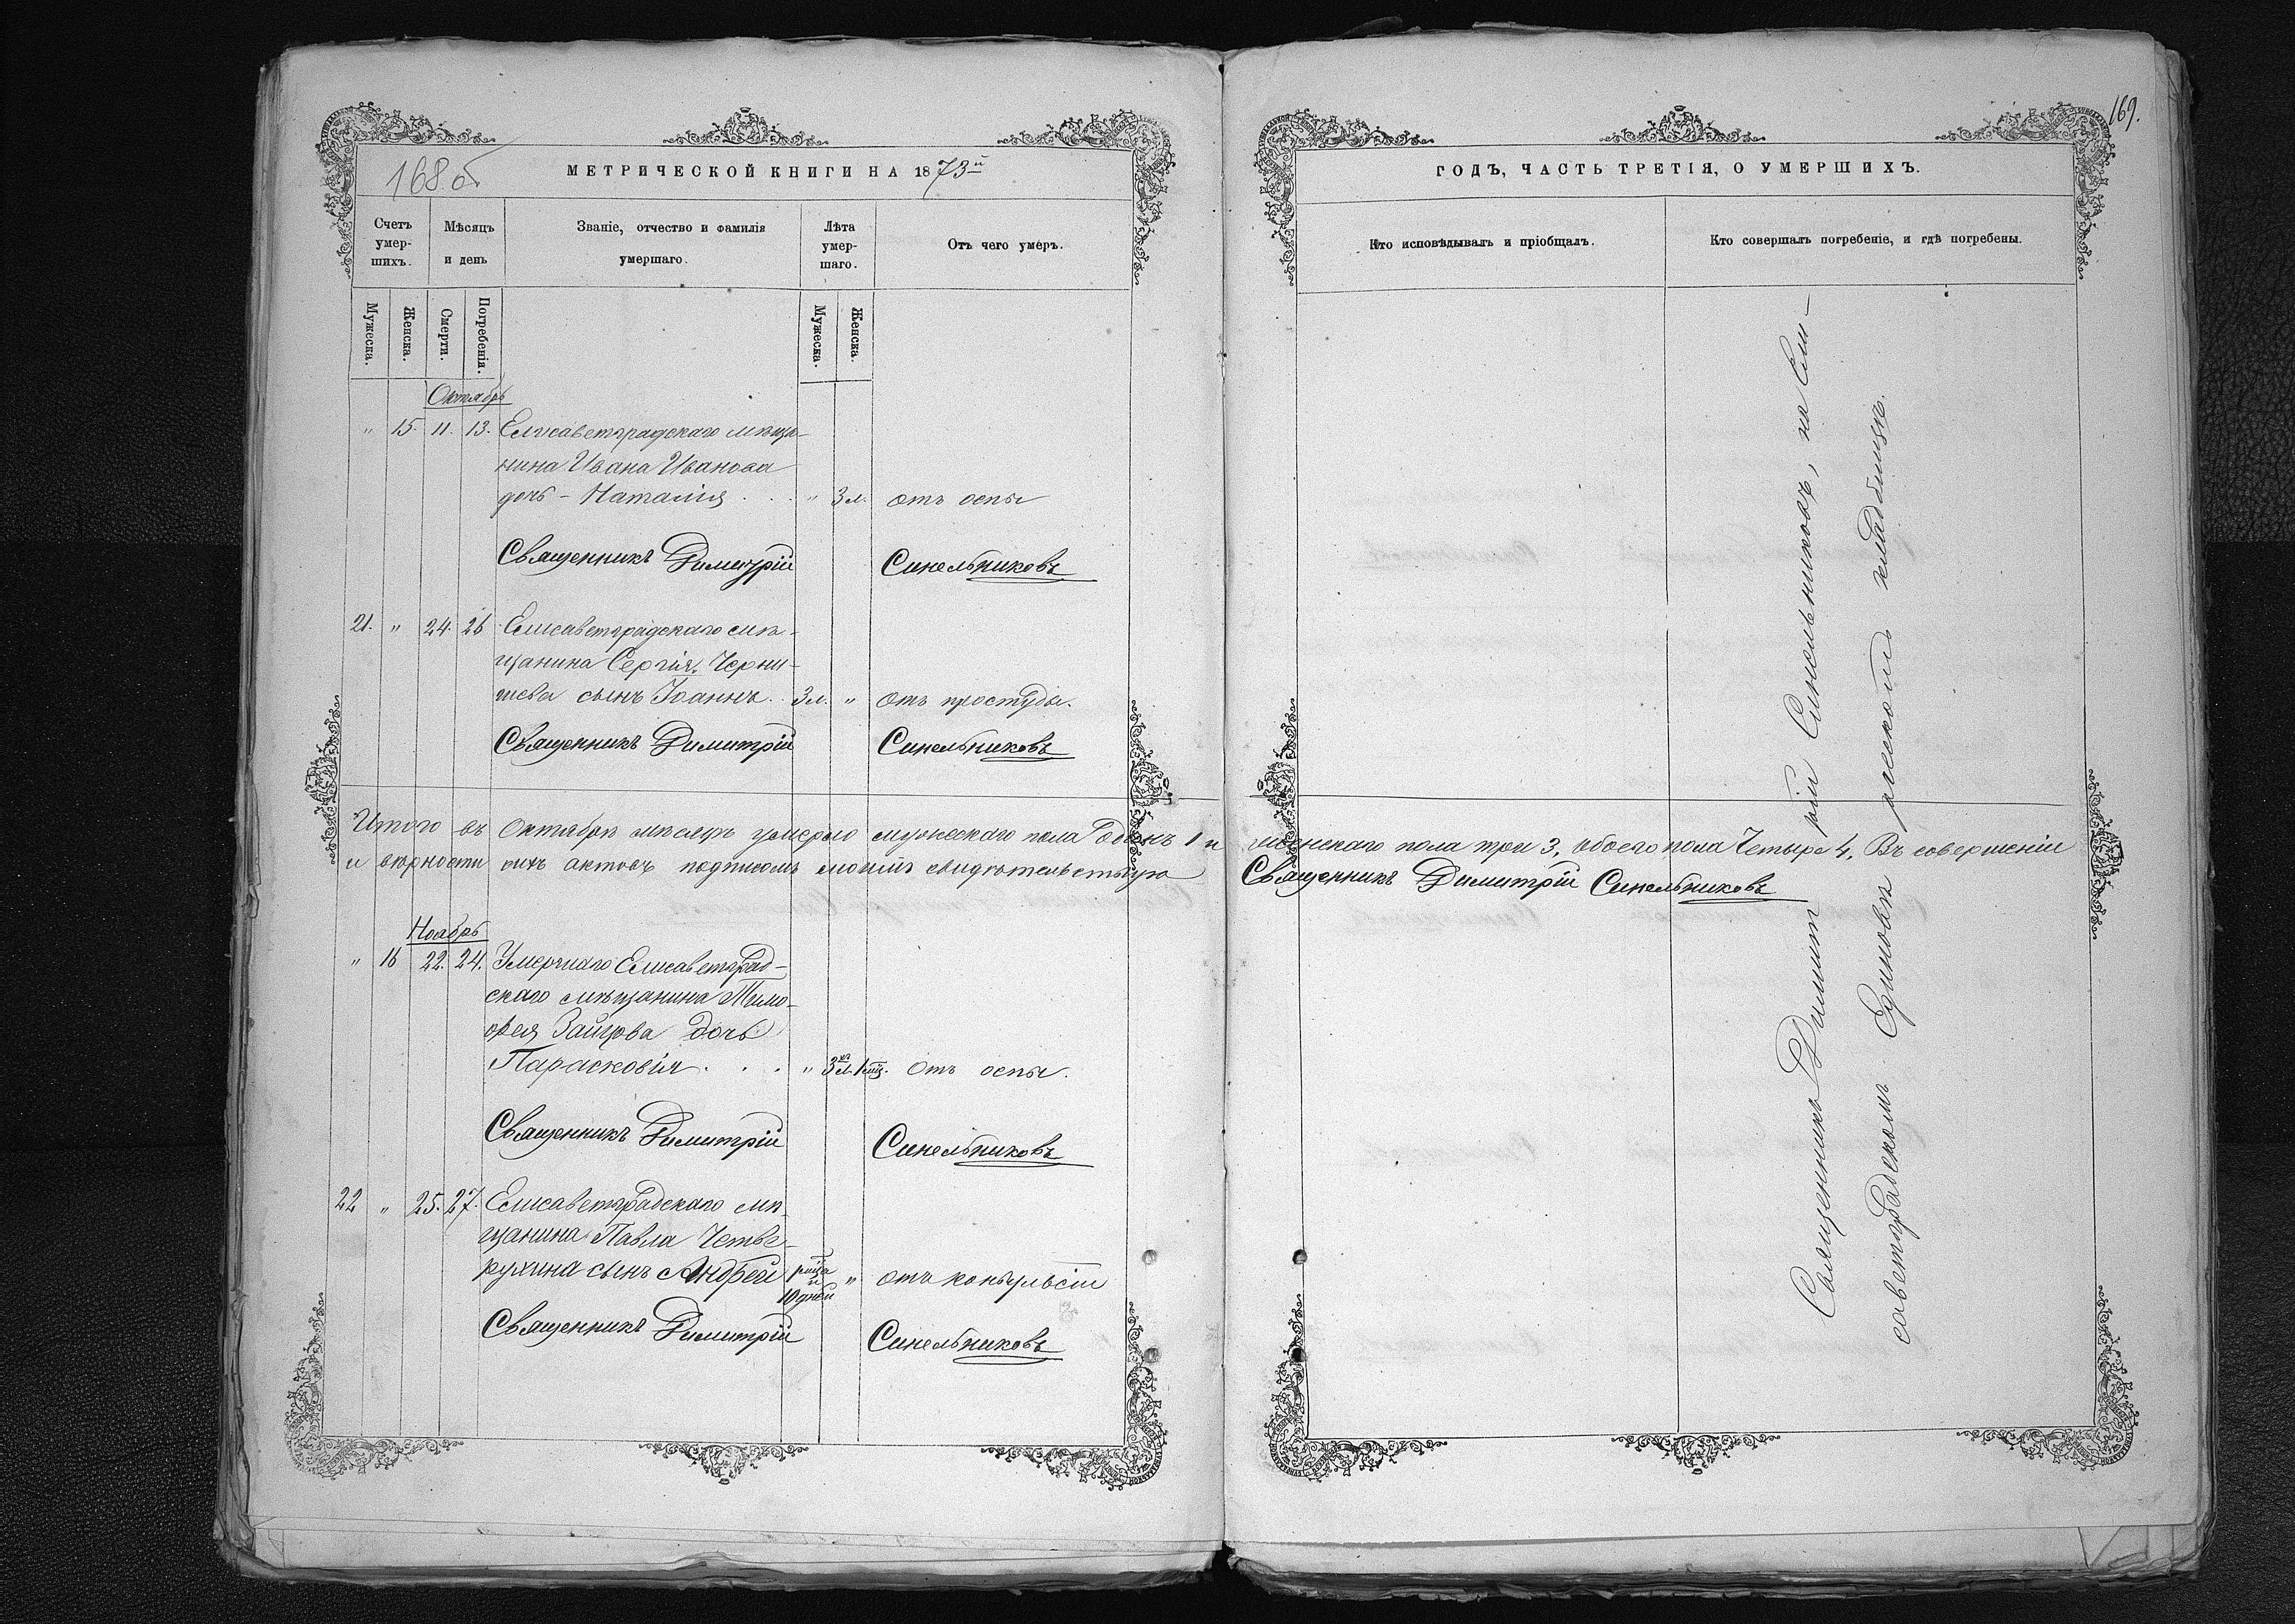 168 об
МЕТРИЧЕСКОЙ КНИГИ НА 1873й
Счетъ умер-шихъ.
Мѣсяцъ и день
Званіе, отчество и фамилія умершаго.
Лѣта умер-шаго.
Отъ чего умеръ.
Мужеска.
Женска.
Смерти.
Погребенія.
Мужеска.
Женска.
Октябрь
" 15. 11. 13. Елисаветградскаго мѣща-
нина Ивана Иванова
дочь - Наталія . . . " 3 л. отъ оспы
Священникъ Димитрій Синельниковъ
21. " 24. 26 Елисаветградскаго мѣ-
щанина Сергія Черны-
шева сынъ Іоаннъ . . 3 л. " отъ простуды.
Священникъ Димитрій Синельниковъ
Итого въ Октябрѣ мѣсяцѣ умерло мужескаго пола Одинъ 1 и
и вѣрности сихъ актовъ подписомъ моимъ свидѣтельствую
Ноябрь
" 16 22. 24. Умершаго Елисаветград-
скаго мѣщанина Тимо-
ѳея Зайцова дочь
Парасковія . . . " 3 л. 1 мц. отъ оспы.
Священникъ Димитрій Синельниковъ
22 " 25. 27. Елисаветградскаго мѣ-
щанина Павла Четве-
рухина сынъ Андрей " отъ конвульсіи
10 дней
Священникъ Димитрій Синельниковъ
169.
ГОДЪ, ЧАСТЬ ТРЕТІЯ, О УМЕРШИХЪ.
Кто исповѣдывалъ и пріобщалъ.
Кто совершалъ погребеніе, и гдѣ погребены.
женскаго пола три 3, обоего пола Четыре 4. Въ совершеніи
Священникъ Димитрій Синельниковъ
Священникъ Димитрій Синельниковъ, на Ели-
саветградскомъ Единовѣрческомъ кладбищѣ.